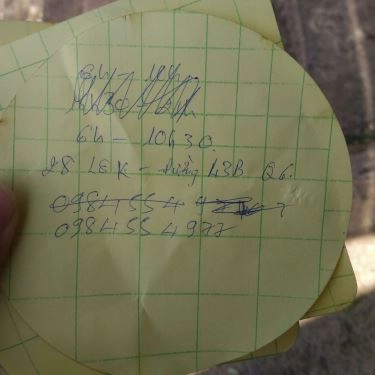 6h - 10h30.
28 LEK - đường 43B Q6.
0984 55 4
0984 55 4977